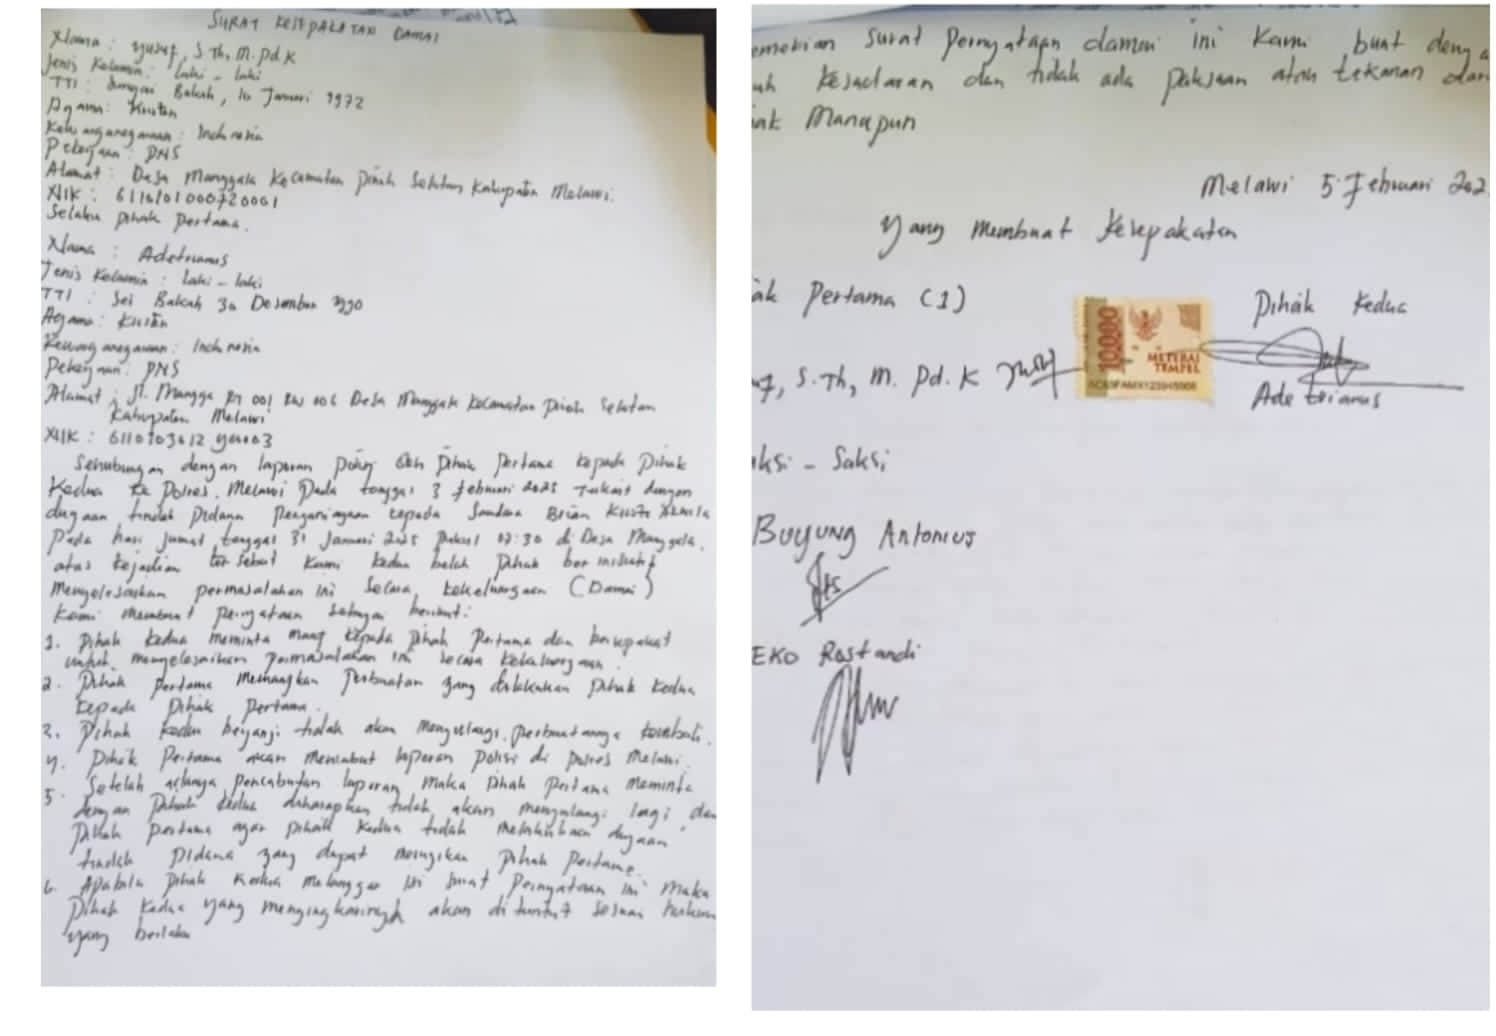 SURAT KESEPAKATAN DAMAI
Nama : Yusuf, S.Th, M.Pd.K
Jenis Kelamin : Laki - laki
TTl : Sungai Bakah, 10 Januari 1972
Agama : Kristen
Kewarganegaraan : Indonesia
Pekerjaan : PNS
Alamat : Desa Manggala Kecamatan Pinoh Selatan Kabupaten Melawi.
NIK :
Selaku Pihak Pertama.
Nama : Adetrianus
Jenis Kelamin : Laki - laki
TTl : Sei Bakah 30 Desember 1990
Agama : Kristen
Kewarganegaraan : Indonesia
Pekerjaan : PNS
Alamat : Jl. Mangga RT 001 RW 006 Desa Manggala Kecamatan Pinoh Selatan
Kabupaten Melawi
NIK :
Sehubungan dengan laporan polisi oleh Pihak Pertama kepada Pihak
Kedua ke Polres Melawi Pada tanggal 3 Februari 2025 Terkait dengan
dugaan tindak Pidana Penganiayaan kepada Saudara Brian
Pada hari Jumat tanggal 31 Januari 2025 Pukul 07:30 di Desa Manggala.
atas kejadian tersebut Kami kedua belah Pihak berinisiatif
Menyelesaikan permasalahan ini secara kekeluargaan (Damai)
Kami membuat pernyataan sebagai berikut:
1. Pihak Kedua meminta maaf kepada Pihak Pertama dan bersepakat
untuk menyelesaikan permasalahan ini secara kekeluargaan.
2. Pihak Pertama Memaafkan Perbuatan yang dilakukan Pihak Kedua
kepada Pihak Pertama.
3. Pihak Kedua berjanji tidak akan mengulangi perbuatannya kembali.
4. Pihak Pertama akan mencabut laporan Polisi di Polres Melawi.
5. Setelah adanya Pencabutan laporan maka Pihak Pertama meminta
dengan Pihak Kedua diharapkan tidak akan mengulangi lagi, dan
Pihak pertama agar pihak Kedua tidak melakukan dugaan
tindak Pidana yang dapat merugikan Pihak Pertama.
6. Apabila Pihak Kedua melanggar isi surat Pernyataan ini maka
Pihak Kedua yang mengingkarinya akan dituntut sesuai hukum
yang berlaku
emekian Surat Pernyataan damai ini Kami buat denga
uh Kesadaran dan tidak ada paksaan atau tekanan dari
ak Manapun
Melawi 5 Februari 202
Yang Membuat Kesepakatan
ak Pertama (1)
Pihak Kedua
10000
METERAI
TEMPEL
f, S.Th, M.Pd.K
Adetrianus
ksi - Saksi
Buyung Antonius
EKO Rostandi